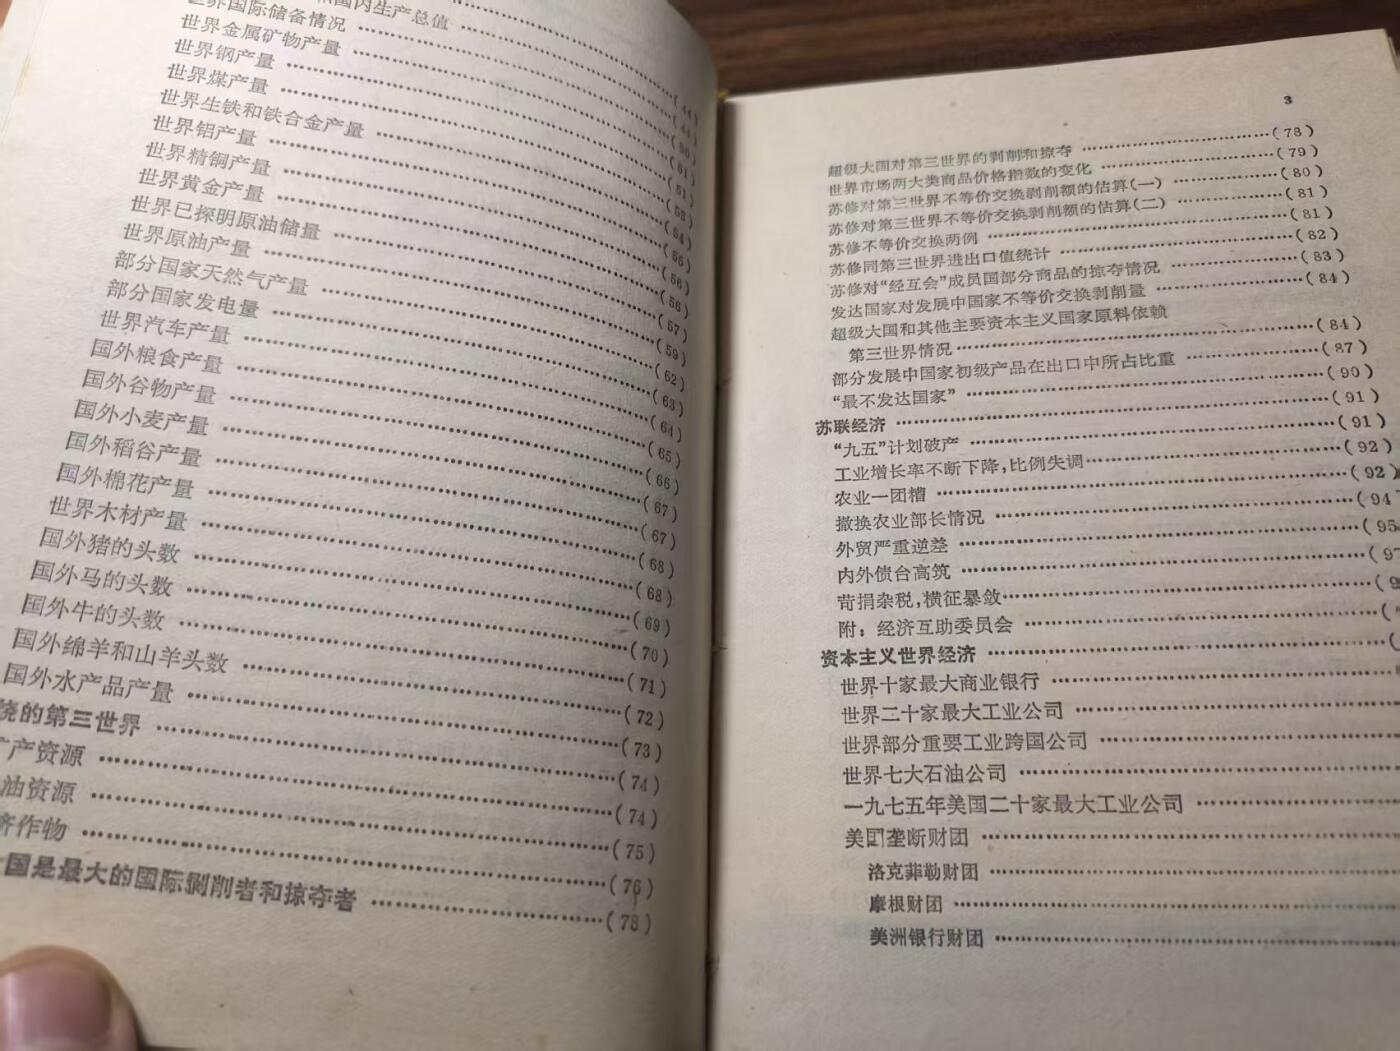 国内生产总值
世界国际储备情况 (50)
世界金属矿物产量 (51)
世界钢产量 (51)
世界煤产量 (53)
世界生铁和铁合金产量 (54)
世界铝产量 (55)
世界精铜产量 (56)
世界黄金产量 (56)
世界已探明原油储量 (57)
世界原油产量 (59)
部分国家天然气产量 (62)
部分国家发电量 (63)
世界汽车产量 (64)
国外粮食产量 (65)
国外谷物产量 (66)
国外小麦产量 (67)
国外稻谷产量 (67)
国外棉花产量 (68)
世界木材产量 (68)
国外猪的头数 (69)
国外马的头数 (70)
国外牛的头数 (71)
国外绵羊和山羊头数 (72)
国外水产品产量 (73)
饶的第三世界 (74)
产资源 (74)
油资源 (75)
作物 (76)
国是最大的国际剥削者和掠夺者 (78)
3
超级大国对第三世界的剥削和掠夺 (78)
世界市场两大类商品价格指数的变化 (79)
苏修对第三世界不等价交换剥削额的估算(一) (80)
苏修对第三世界不等价交换剥削额的估算(二) (81)
苏修不等价交换两例 (81)
苏修同第三世界进出口值统计 (82)
苏修对“经互会”成员国部分商品的掠夺情况 (83)
发达国家对发展中国家不等价交换剥削量 (84)
超级大国和其他主要资本主义国家原料依赖
第三世界情况 (84)
部分发展中国家初级产品在出口中所占比重 (87)
“最不发达国家” (90)
苏联经济 (91)
“九五”计划破产 (91)
工业增长率不断下降,比例失调 (92)
农业一团糟 (92)
撤换农业部长情况 (94
外贸严重逆差 (95
内外债台高筑 (97
苛捐杂税,横征暴敛
附:经济互助委员会
资本主义世界经济
世界十家最大商业银行
世界二十家最大工业公司
世界部分重要工业跨国公司
世界七大石油公司
一九七五年美国二十家最大工业公司
美国垄断财团
洛克菲勒财团
摩根财团
美洲银行财团